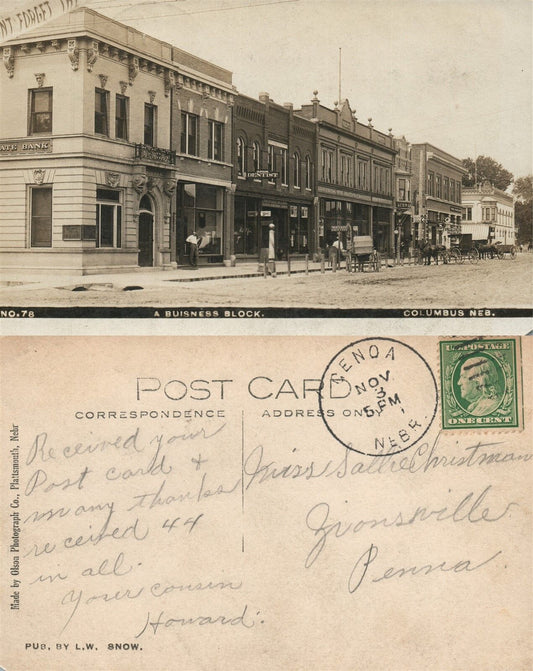 NT FORGET THE
ATE BANK
DENTIST
NO. 78
A BUISNESS BLOCK.
COLUMBUS NEB.
POST CARD
CORRESPONDENCE
ADDRESS ONLY
GENOA
NOV
3
5 PM
NEBR.
U.S. POSTAGE
ONE CENT
Received your
Post card &
many thanks
received 44
in all.
Your cousin
Howard.
Miss Sallie Christman
Ironsville
Penna.
Made by Olson Photograph Co., Plattsmouth, Nebr
PUB. BY L.W. SNOW.